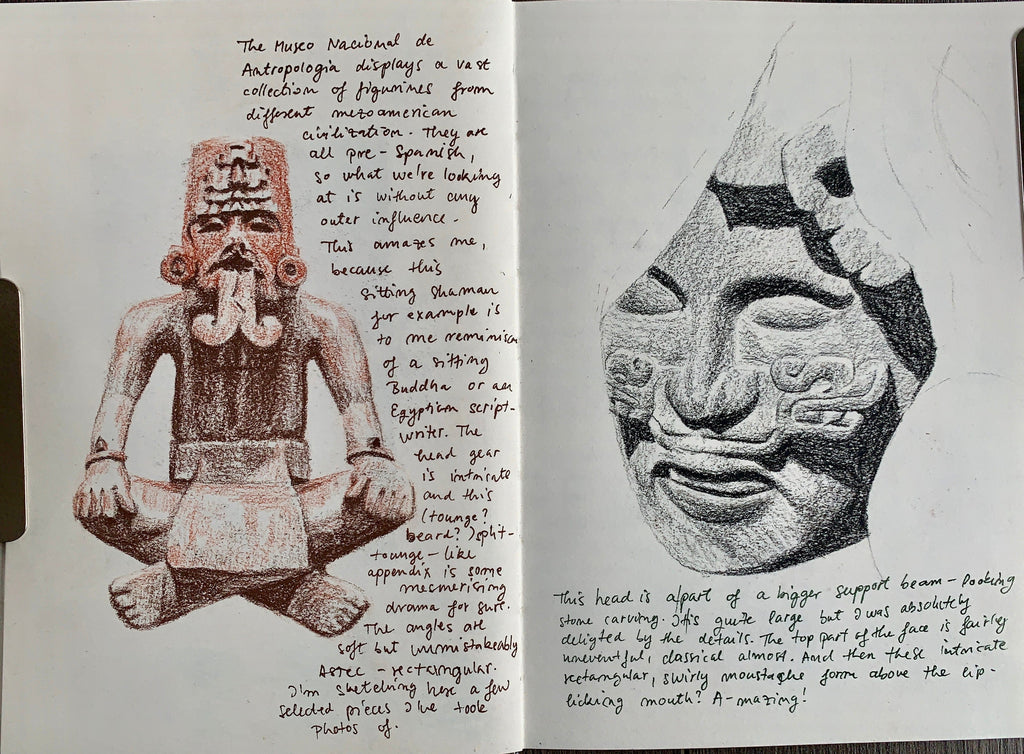 The Museo Nacional de
Antropologia displays a vast
collection of figurines from
different mezoamerican
civilization. They are
all pre-Spanish,
so what we're looking
at is without any
outer influence.
This amazes me,
because this
sitting shaman
for example is
to me reminisce
of a sitting
Buddha or an
Egyptian script-
writer. The
head gear
is intricate
and this
(tounge?
beard?) split-
tounge-like
appendix is some
mesmerising
drama for sure.
The angles are
soft but unmistakeably
Aztec - rectangular.
I'm sketching here a few
selected pieces I've took
photos of.
This head is a part of a bigger support beam-looking
stone carving. It's quite large but I was absolutely
deligted by the details. The top part of the face is fairly
uneventful, classical almost. And then these intricate
rectangular, swirly moustache form above the lip-
licking mouth? A-mazing!